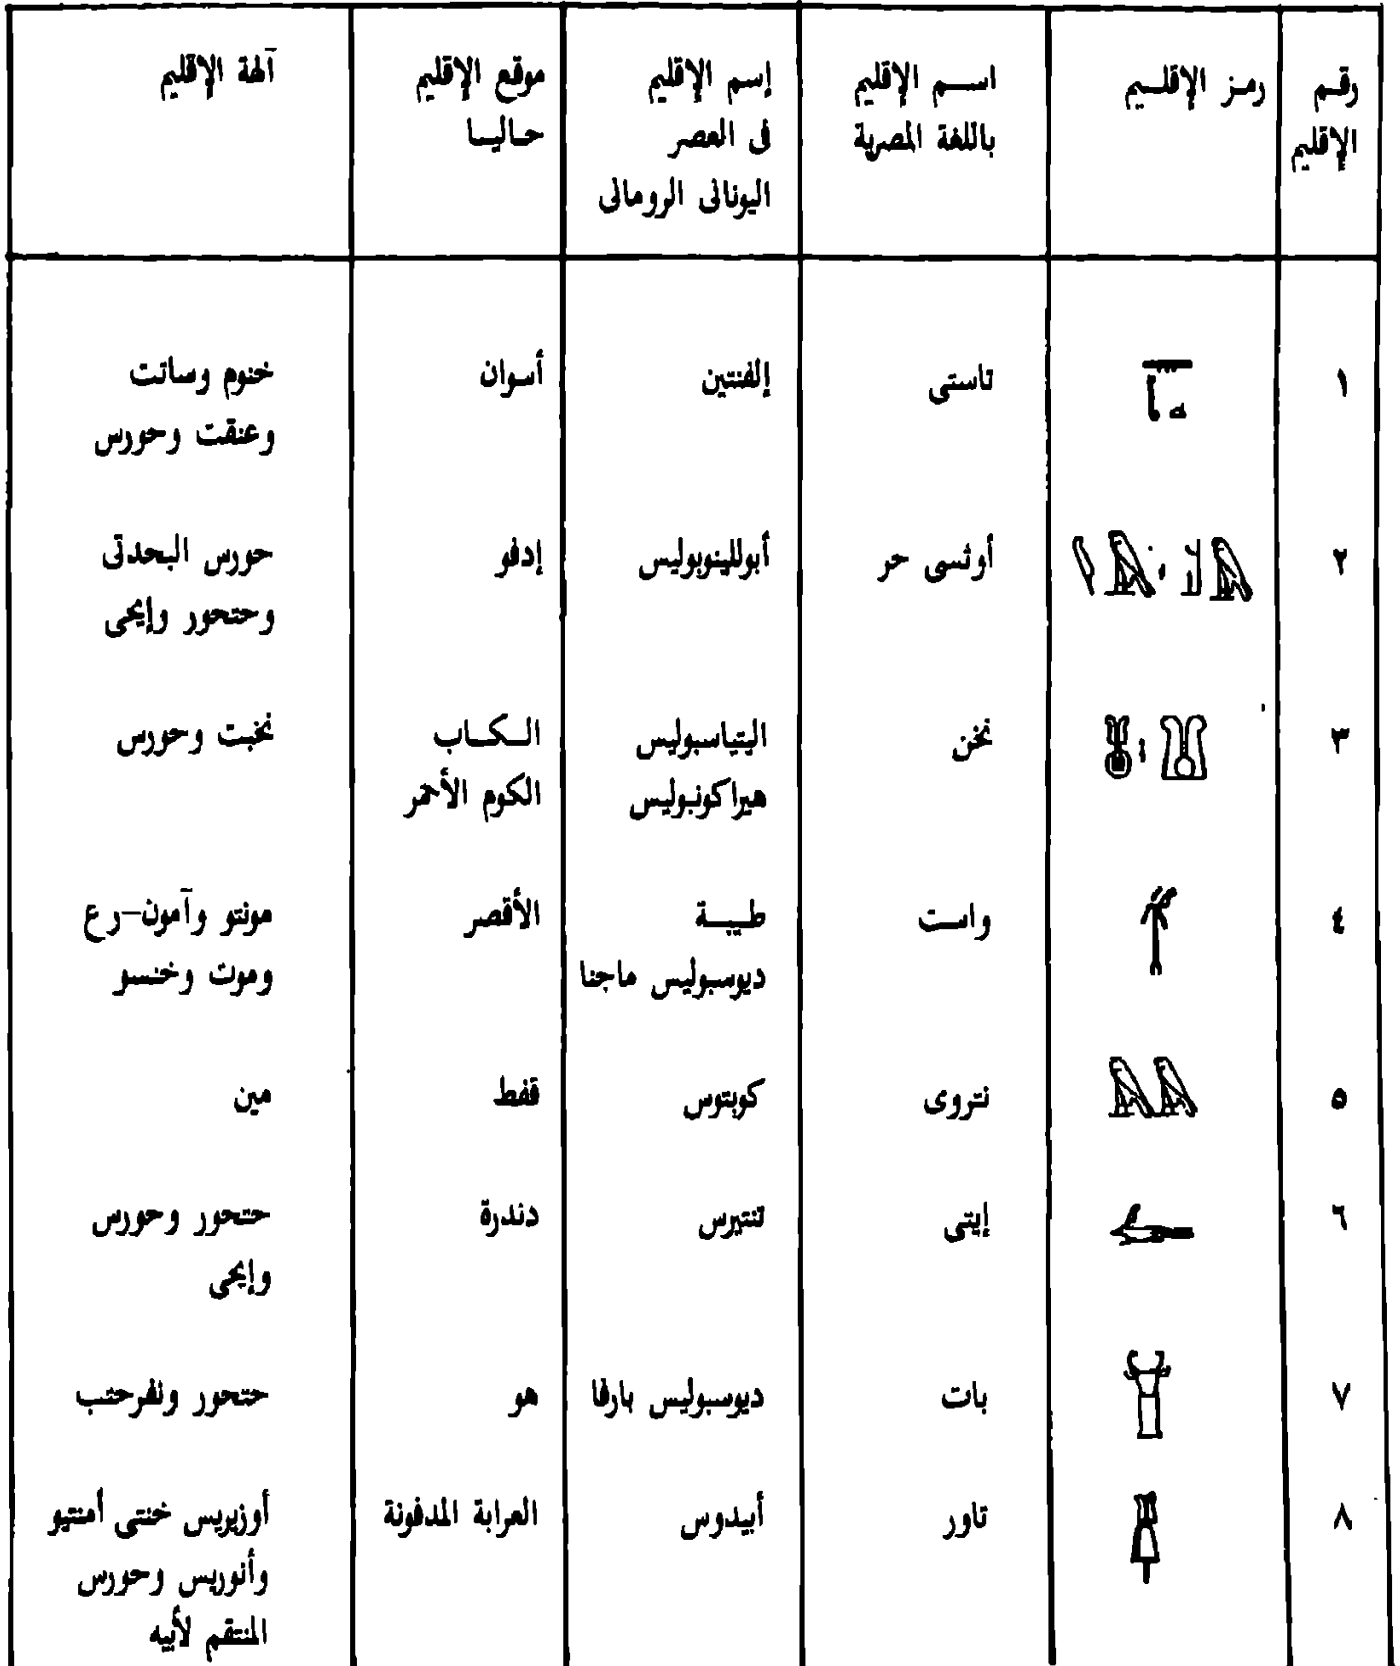 رقم الإقليم
رمز الإقليم
اسم الإقليم باللغة المصرية
إسم الإقليم فى العصر اليونانى الرومانى
موقع الإقليم حاليا
آلهة الإقليم
١
تاستى
إلفنتين
أسوان
خنوم وساتت
وعنقت وحورس
٢
أوثسى حر
أبوللينوبوليس
إدفو
حورس البحدتى
وحتحور وإيحى
٣
نخن
اليتياسبوليس
هيراكونبوليس
الكاب
الكوم الأحمر
نخبت وحورس
٤
واست
طيبة
ديوسبوليس ماجنا
الأقصر
مونتو وآمون-رع
وموت وخنسو
٥
نتروى
كوبتوس
قفط
مين
٦
إيتى
تنتيرس
دندرة
حتحور وحورس
وإيحى
٧
بات
ديوسبوليس بارفا
هو
حتحور ونفرحتب
٨
تاور
أبيدوس
العرابة المدفونة
أوزيريس خنتى أمنتيو
وأنوريس وحورس
المنتقم لأبيه